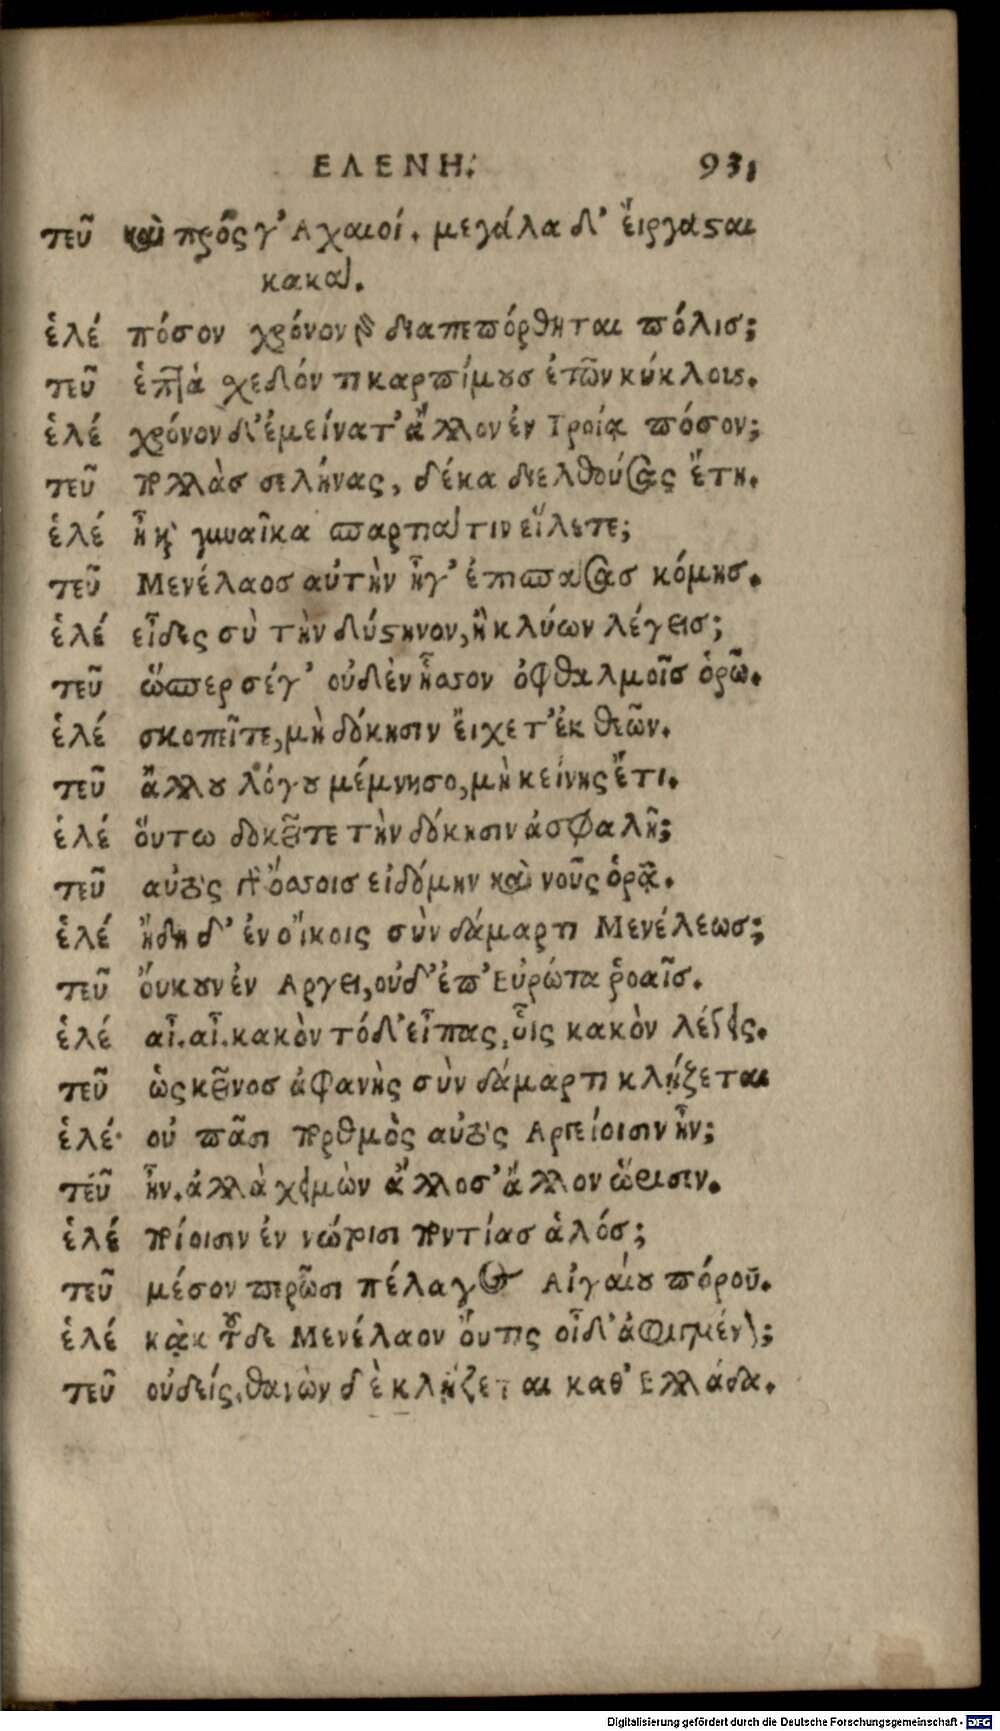 ΕΛΕΝΗ. 931
τεῦ καὶ πρός γ' Αχαιοί. μεγάλα δ' ἔιργασαι
κακά.
ἑλέ πόσον χρόνον διαπεπόρθηται πόλισ;
τεῦ ἑπτὰ χεδόν τι καρπίμουσ ἐτῶν κύκλους.
ἑλέ χρόνον δ' ἐμείνατ' ἄλλον ἐν Τροίᾳ πόσον;
τεῦ πολλὰσ σελήνας, δέκα διελθούσας ἔτη.
ἑλέ ἦ καὶ γυναῖκα σπαρτιάτιν εἵλετε;
τεῦ Μενέλαοσ αὐτὴν ἦγ' ἐπισπάσασ κόμησ.
ἑλέ εἶδες σὺ τὴν δύστηνον, ἢ κλύων λέγεισ;
τεῦ ὥσπερ σέ γ' οὐδὲν ἧσσον ὀφθαλμοῖσ ὁρῶ.
ἑλέ σκοπεῖτε, μὴ δόκησιν ἔιχετ' ἐκ θεῶν.
τεῦ ἄλλου λόγου μέμνησο, μὴ κείνης ἔτι.
ἑλέ ὅυτω δοκεῖτε τὴν δόκησιν ἀσφαλῆ;
τεῦ αὐτὸς γὰρ ὄσσοισ εἰδόμην καὶ νοῦς ὁρᾷ.
ἑλέ ἤδη δ' ἐν ὄικοις σὺν δάμαρτι Μενέλεωσ;
τεῦ ὄυκουν ἐν Αργει, οὐδ' ἐπ' Εὐρώτα ῥοαῖσ.
ἑλέ αἶ. αἶ. κακὸν τόδ' εἶπας, οἷς κακὸν λέγεις.
τεῦ ὡς κεῖνοσ ἀφανὴς σὺν δάμαρτι κλῄζεται
ἑλέ οὐ πᾶσι πορθμὸς αὐτὸς Αργείοισιν ἦν;
τεῦ ἦν. ἀλλὰ χειμὼν ἄλλοσ' ἄλλον ὥρισιν.
ἑλέ ποίοισιν ἐν νώτοισι ποντίασ ἁλός;
τεῦ μέσον περῶσι πέλαγος Αἰγαίου πόρου.
ἑλέ κᾀκ τοῦδε Μενέλαον ὄυτις οἶδ' ἀφιγμένον;
τεῦ οὐδείς. θανὼν δὲ κλῄζεται καθ' Ελλάδα.
Digitalisierung gefördert durch die Deutsche Forschungsgemeinschaft - DFG